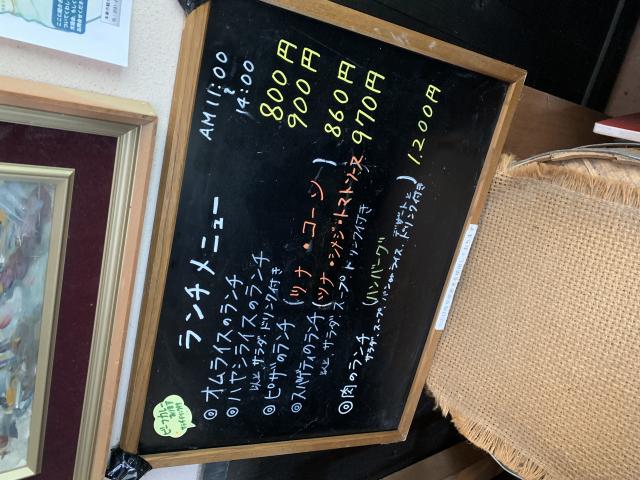 ランチメニュー AM 11:00
~
14:00
◎オムライスのランチ 800円
◎ハヤシライスのランチ 900円
以上、サラダ、ドリンク付き
◎ピザのランチ (ツナ・コーン) 860円
◎スパゲティのランチ (ツナ・シメジ・トマトソース 970円
以上、サラダ、スープ、ドリンク付き
◎肉のランチ (ハンバーグ) 1.200円
サラダ、スープ、パン又はライス、デザートと
ドリンク付き
ビーフカレー